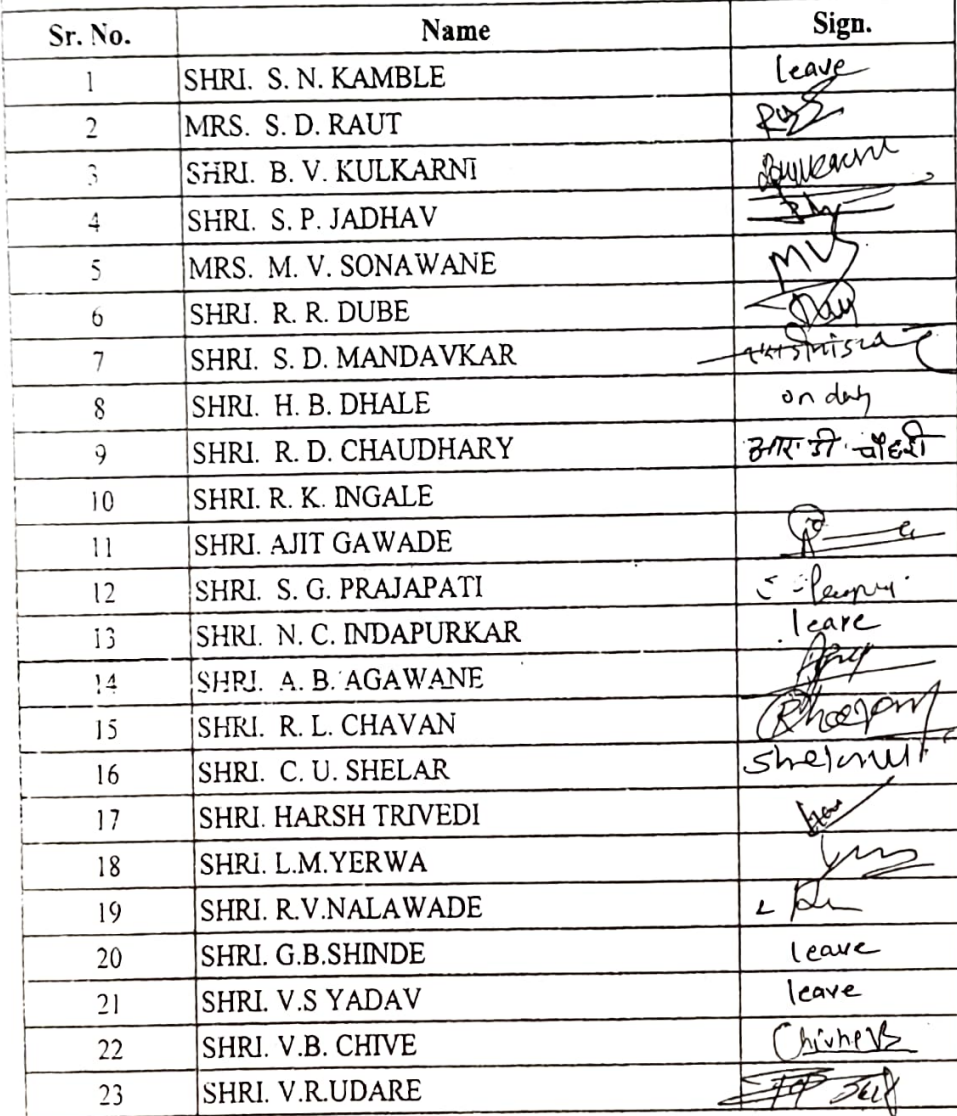 Sr. No. Name Sign.
1 SHRI. S. N. KAMBLE leave
2 MRS. S. D. RAUT
3 SHRI. B. V. KULKARNI
4 SHRI. S. P. JADHAV
5 MRS. M. V. SONAWANE MVS
6 SHRI. R. R. DUBE
7 SHRI. S. D. MANDAVKAR
8 SHRI. H. B. DHALE on duty
9 SHRI. R. D. CHAUDHARY आर. डी. चौहरी
10 SHRI. R. K. INGALE
11 SHRI. AJIT GAWADE
12 SHRI. S. G. PRAJAPATI
13 SHRI. N. C. INDAPURKAR leave
14 SHRI. A. B. AGAWANE
15 SHRI. R. L. CHAVAN
16 SHRI. C. U. SHELAR
17 SHRI. HARSH TRIVEDI
18 SHRI. L.M.YERWA
19 SHRI. R.V.NALAWADE
20 SHRI. G.B.SHINDE leave
21 SHRI. V.S YADAV leave
22 SHRI. V.B. CHIVE
23 SHRI. V.R.UDARE